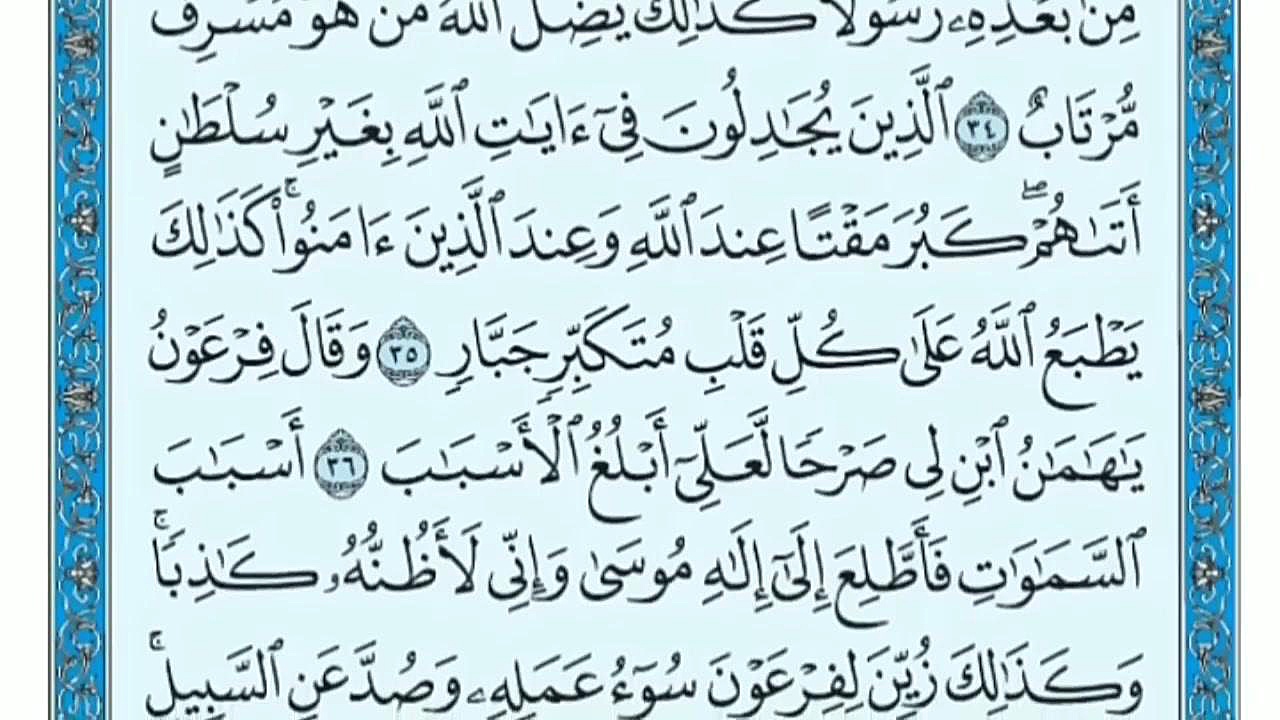 مِنۢ بَعْدِهِۦ رَسُولًا كَذَٰلِكَ يُضِلُّ ٱللَّهُ مَنْ هُوَ مُسْرِفٌ
مُّرْتَابٌ ٣٤ ٱلَّذِينَ يُجَٰدِلُونَ فِىٓ ءَايَٰتِ ٱللَّهِ بِغَيْرِ سُلْطَٰنٍ
أَتَىٰهُمْ ۖ كَبُرَ مَقْتًا عِندَ ٱللَّهِ وَعِندَ ٱلَّذِينَ ءَامَنُوا۟ ۚ كَذَٰلِكَ
يَطْبَعُ ٱللَّهُ عَلَىٰ كُلِّ قَلْبِ مُتَكَبِّرٍ جَبَّارٍ ٣٥ وَقَالَ فِرْعَوْنُ
يَٰهَٰمَٰنُ ٱبْنِ لِى صَرْحًا لَّعَلِّىٓ أَبْلُغُ ٱلْأَسْبَٰبَ ٣٦ أَسْبَٰبَ
ٱلسَّمَٰوَٰتِ فَأَطَّلِعَ إِلَىٰٓ إِلَٰهِ مُوسَىٰ وَإِنِّى لَأَظُنُّهُۥ كَٰذِبًا ۚ
وَكَذَٰلِكَ زُيِّنَ لِفِرْعَوْنَ سُوٓءُ عَمَلِهِۦ وَصُدَّ عَنِ ٱلسَّبِيلِ ۚ